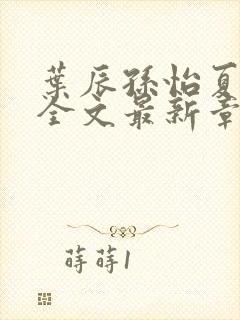 葉辰孫怡夏
全文最新章
蒔蒔1